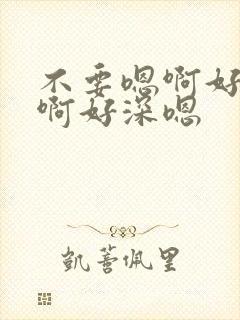 不要嗯啊好
啊好深嗯
凯蒼佩里